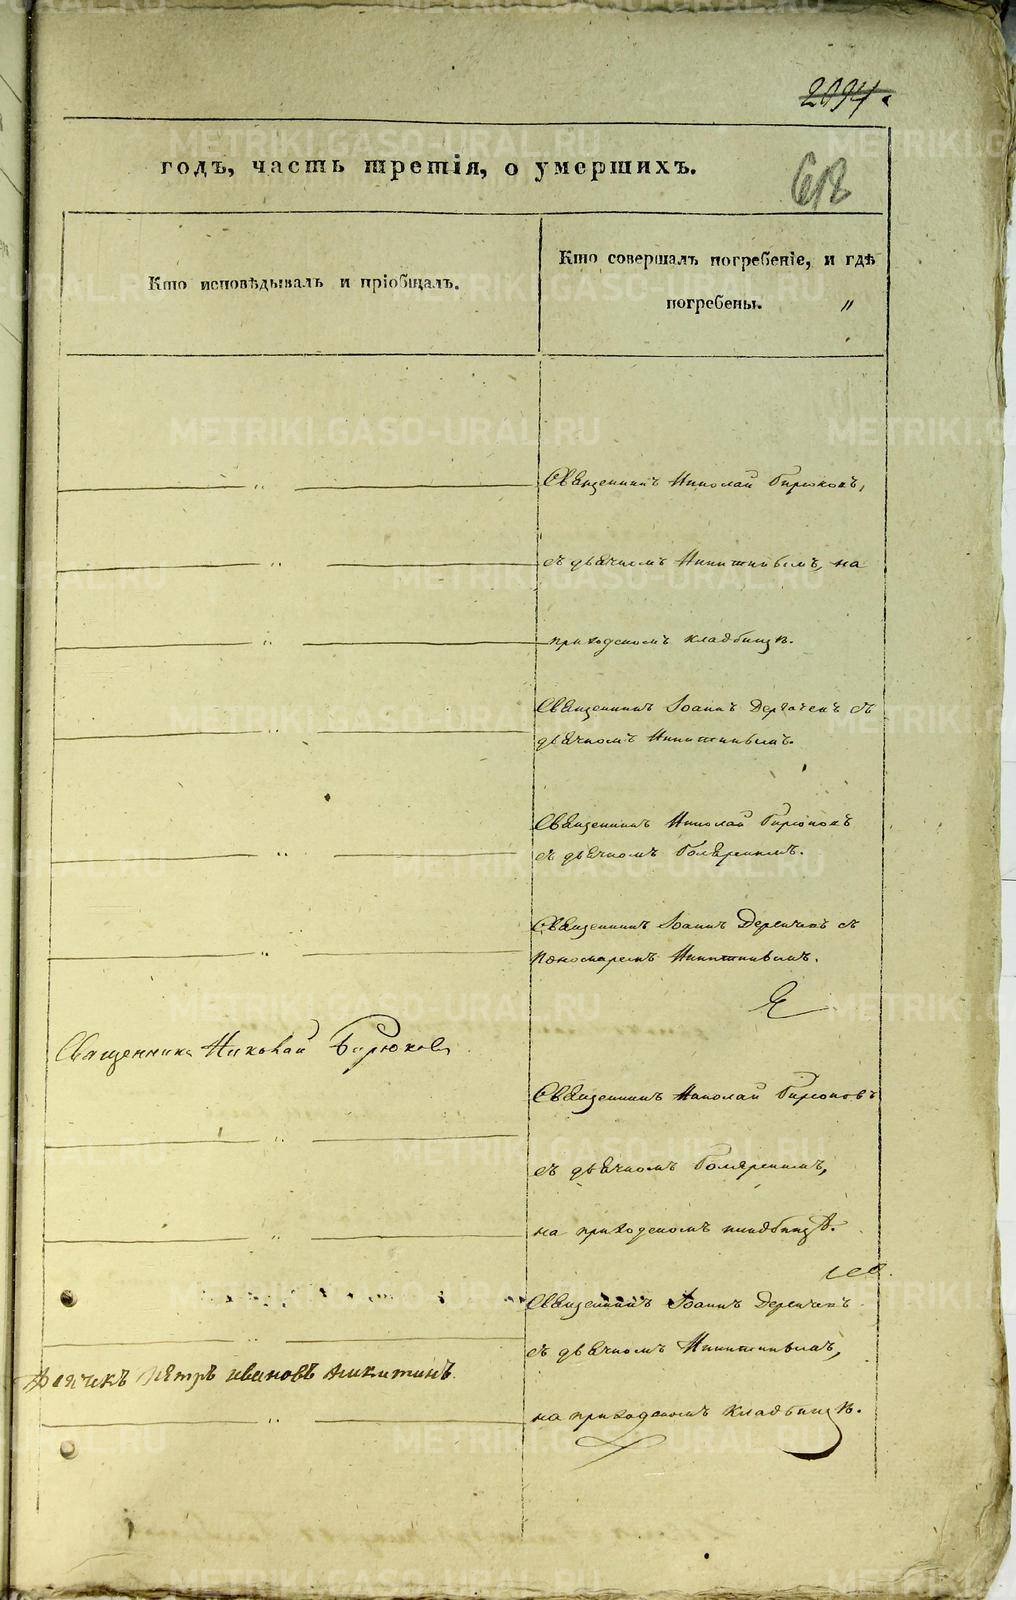 2094.
годъ, часть третія, о умершихъ.
612
Кто исповѣдывалъ и пріобщалъ.
Кто совершалъ погребеніе, и гдѣ
погребены.
Священникъ Николай Бирюковъ,
съ дьячкомъ Никитинымъ, на
приходскомъ кладбищѣ.
Священникъ Іоаннъ Дергачевъ съ
дьячкомъ Никитинымъ.
Священникъ Николай Бирюковъ
съ дьячкомъ
Священникъ Іоаннъ съ
пономаремъ Никитинымъ.
Священникъ Николай Бирюковъ
Священникъ Николай Бирюковъ
съ дьячкомъ
на приходскомъ кладбищѣ.
Священникъ Іоаннъ
съ дьячкомъ Никитинымъ,
Дьячекъ Петръ Ивановъ Никитинъ
на приходскомъ кладбищѣ.
METRIKI.GASO-URAL.RU